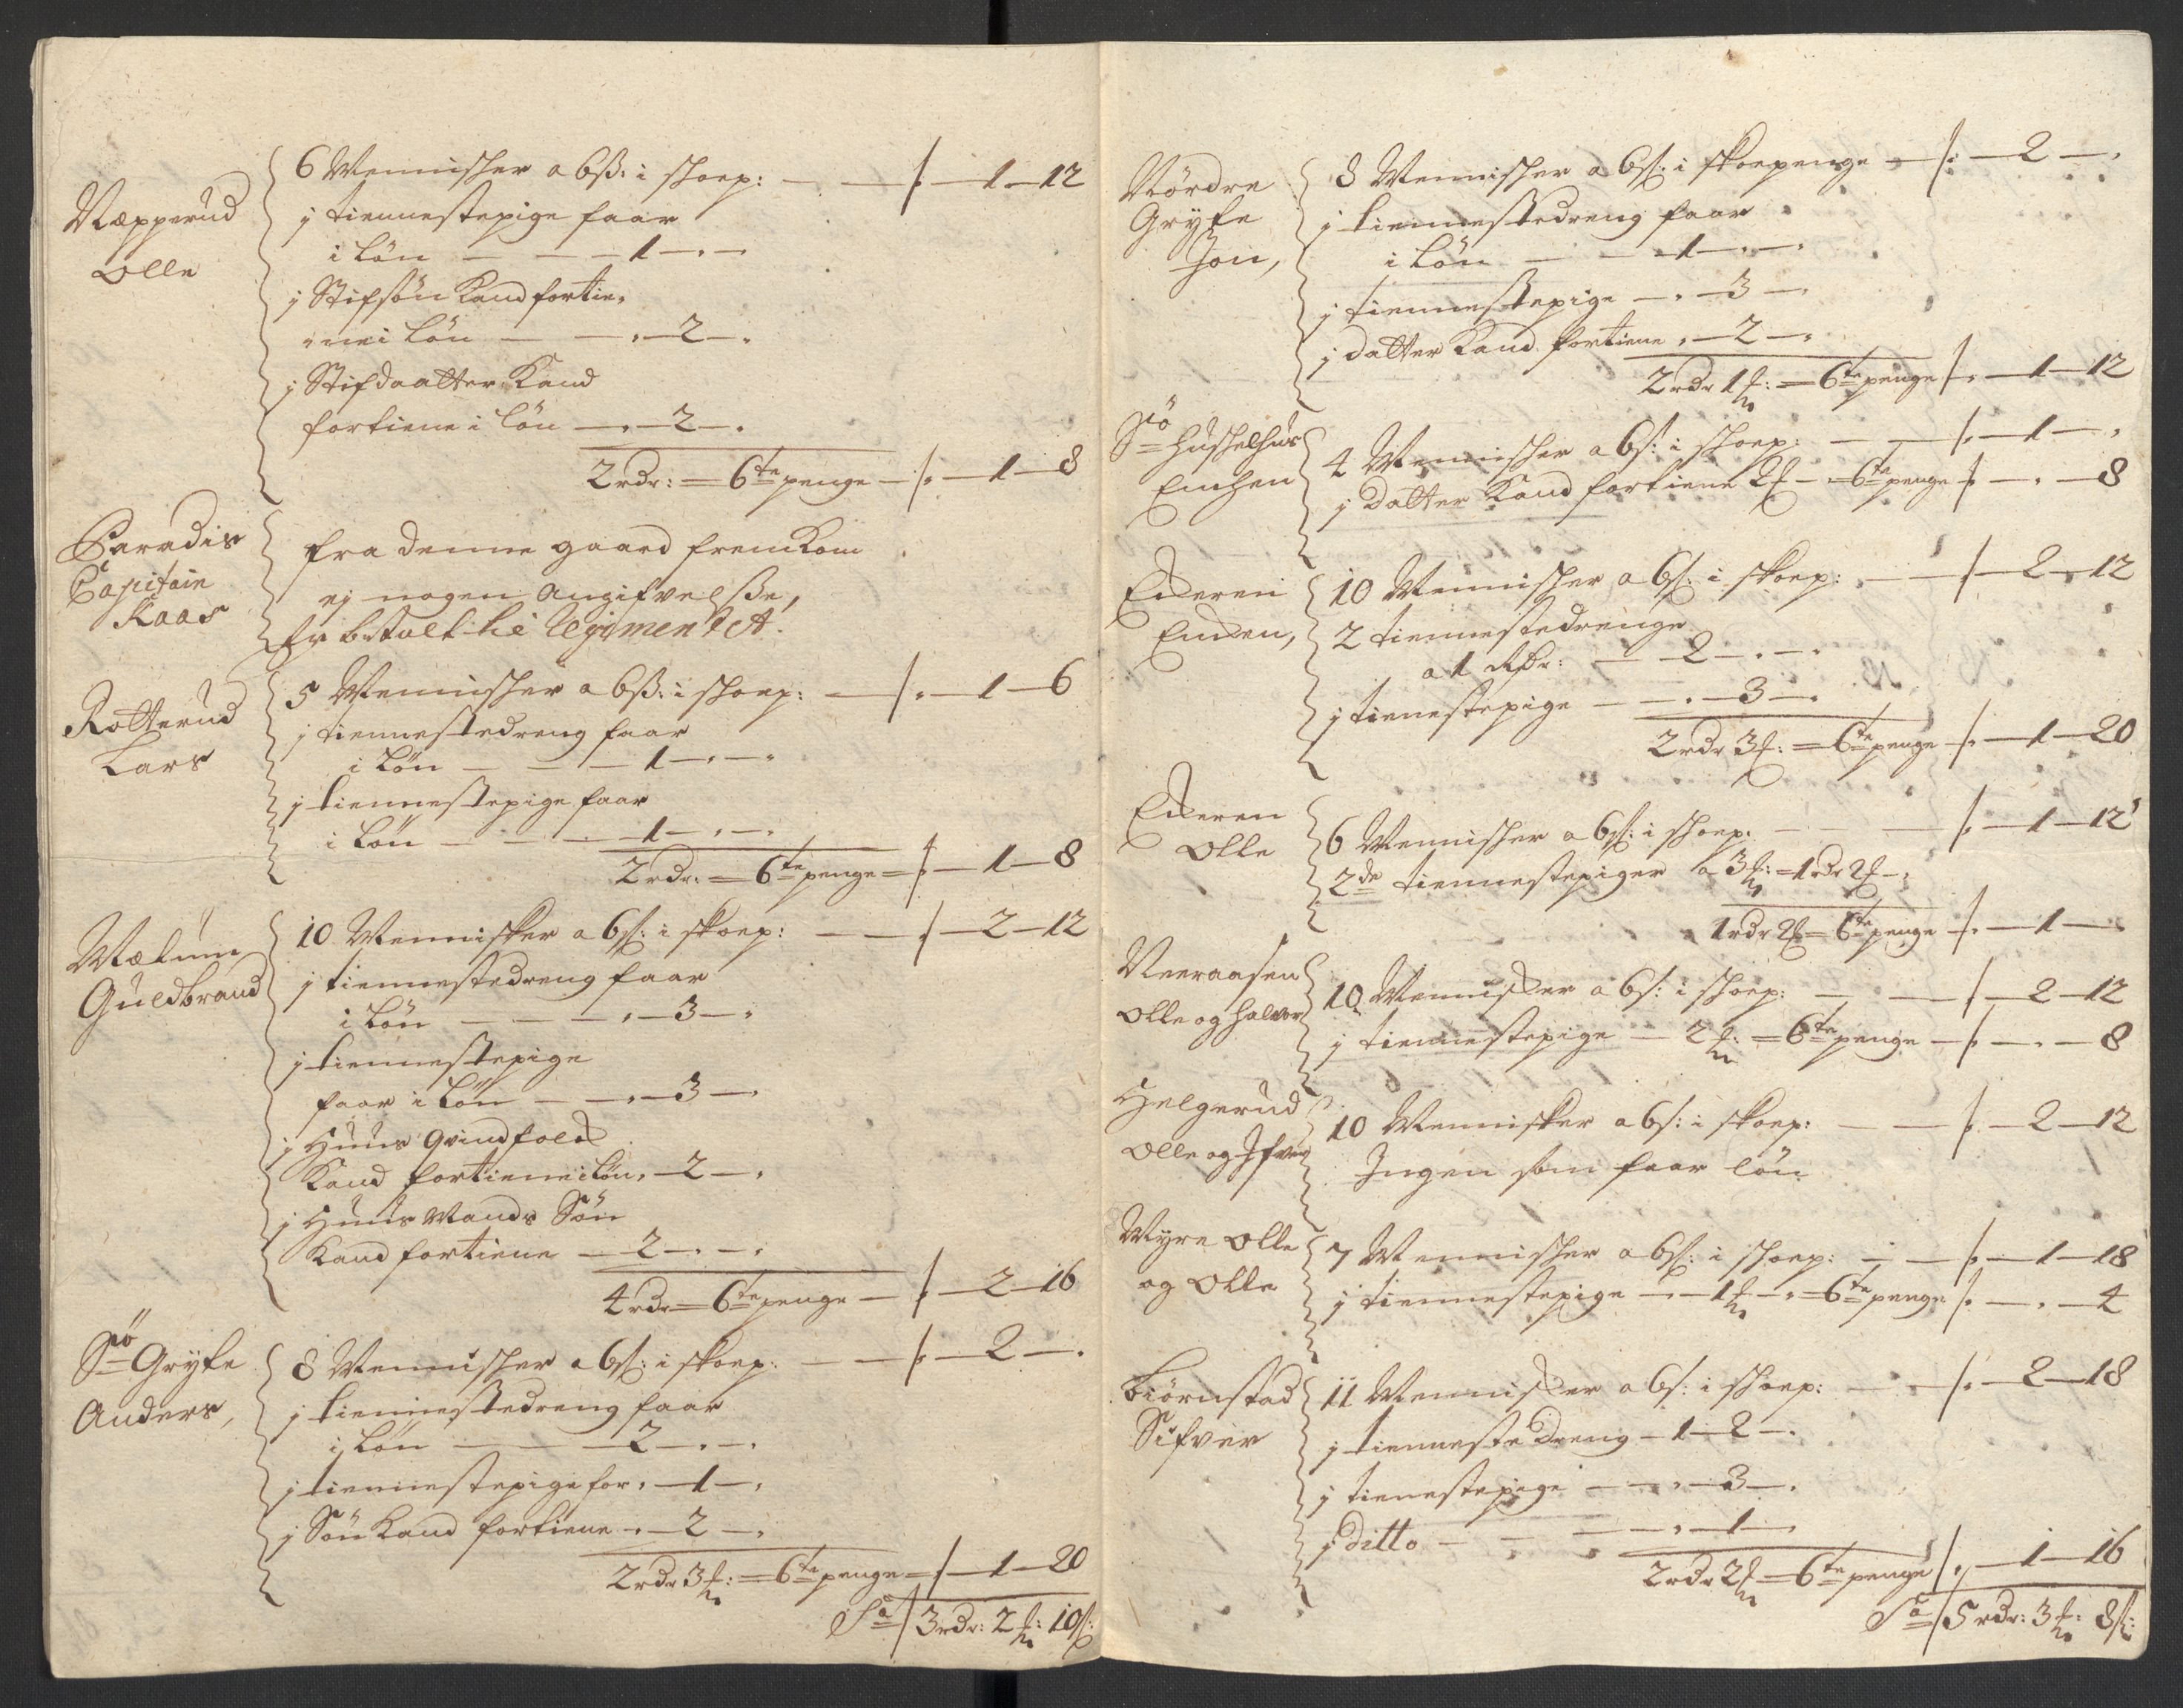 Næpperud
Olle
6 Mennisher a 6ß: i shoep: — — /. — 1 — 12
j tiennestepige faar
i Løn — — — 1 — . —
j Stifsøn Kand fortie,
nei Løn — — . — 2 — .
j Stifdaatter Kand
fortiene i løn — . — 2 — .
2 rdr: = 6te penge — /. — 1 — 8
Paradis
Capitain
Kaas
fra denne gaard fremKom
ej nogen Angifvelsse,
Er betalt til Regimentet.
Rotterud
Lars
5 Mennisher a 6ß: i shoep: — /. — 1 — 6
j tiennestedreng faar
i Løn — — — 1 — . — .
j tiennestepige faar
i Løn — — — 1 — . — .
2 rdr: = 6te penge = /. — 1 — 8
Mælum
Guldbrand
10 Mennisker a 6s: i skoep: — — /. — 2 — 12
j tiennestedreng faar
i Løn — — — . — 3 — .
j tiennestepige
faar i Løn — — . — 3 — .
j Huus Qvindfolck
Kand fortiene i Løn . — 2 — .
j Huus Mands Søn
Kand fortiene — 2 — . — .
4 rdr = 6te penge — /. — 2 — 16
Sø Gryfe
Anders,
8 Mennisher a 6s: i skoep: — — /. — 2 — .
j tiennestedreng faar
i Løn — — — 2 — . — .
j tiennestepige for . — 1 — .
j Søn Kand fortiene . — 2 — .
2 rdr 3 f: = 6te penge = /. — 1 — 20
Sa / 3 rdr: 2 f: 10 s:
Nordre
Gryfe
Jon,
8 Mennisher a 6s: i skoepenge — /: — 2 — .
j tiennestedreng faar
i Løn — — — 1 — . — .
j tiennestepige — . — 3 — .
j datter Kand fortiene . — 2 — .
2 rdr 1 f: = 6te penge /. — 1 — 12
Sø Hushelhus
Enchen
4 Mennisher a 6s: i shoep: — — /. — 1 — .
j Datter Kand fortiene 2 f — . = 6te penge /. — . — 8
Eckeren
Encken,
10 Mennisher a 6s: i skoep: . — — /. — 2 — 12
2 tiennestedrenge
a 1 Rdr: — 2 — . — .
j tienestepige — — . — 3 — .
2 rdr 3 f: = 6te penge — /. — 1 — 20
Eckeren
Olle
6 Mennisher a 6s: i shoep: — — — /. — 1 — 12
2de tiennestepiger a 3 f: = 1 rdr 2 f — .
1 rdr 2 f = 6te penge — /. — 1 — .
Neeraasen
Olle og Halvor
10 Mennisker a 6s: i shoep: — — /. — 2 — 12
j tiennestepige — 2 f: = 6te penge — /. — . — 8
Helgerud
Olle og Ifver
10 Mennisker a 6s: i skoep: — — /. — 2 — 12
Ingen som faar løn
Myre Olle
og Olle
7 Mennisher a 6s: i shoep: — — /. — 1 — 18
j tiennestepige — . — 1 f — . = 6te penge /. — . — 4
Biørnstad
Sifver
11 Mennisker a 6s: i shoep: — — /. — 2 — 18
j tienneste Dreng — 1 — 2 — .
j tienestepige — — . — 3 — .
j ditto — — — . — 1 — .
2 rdr 2 f = 6te penge /. — 1 — 16
Sa / 5 rdr: 3 f: 8 s: